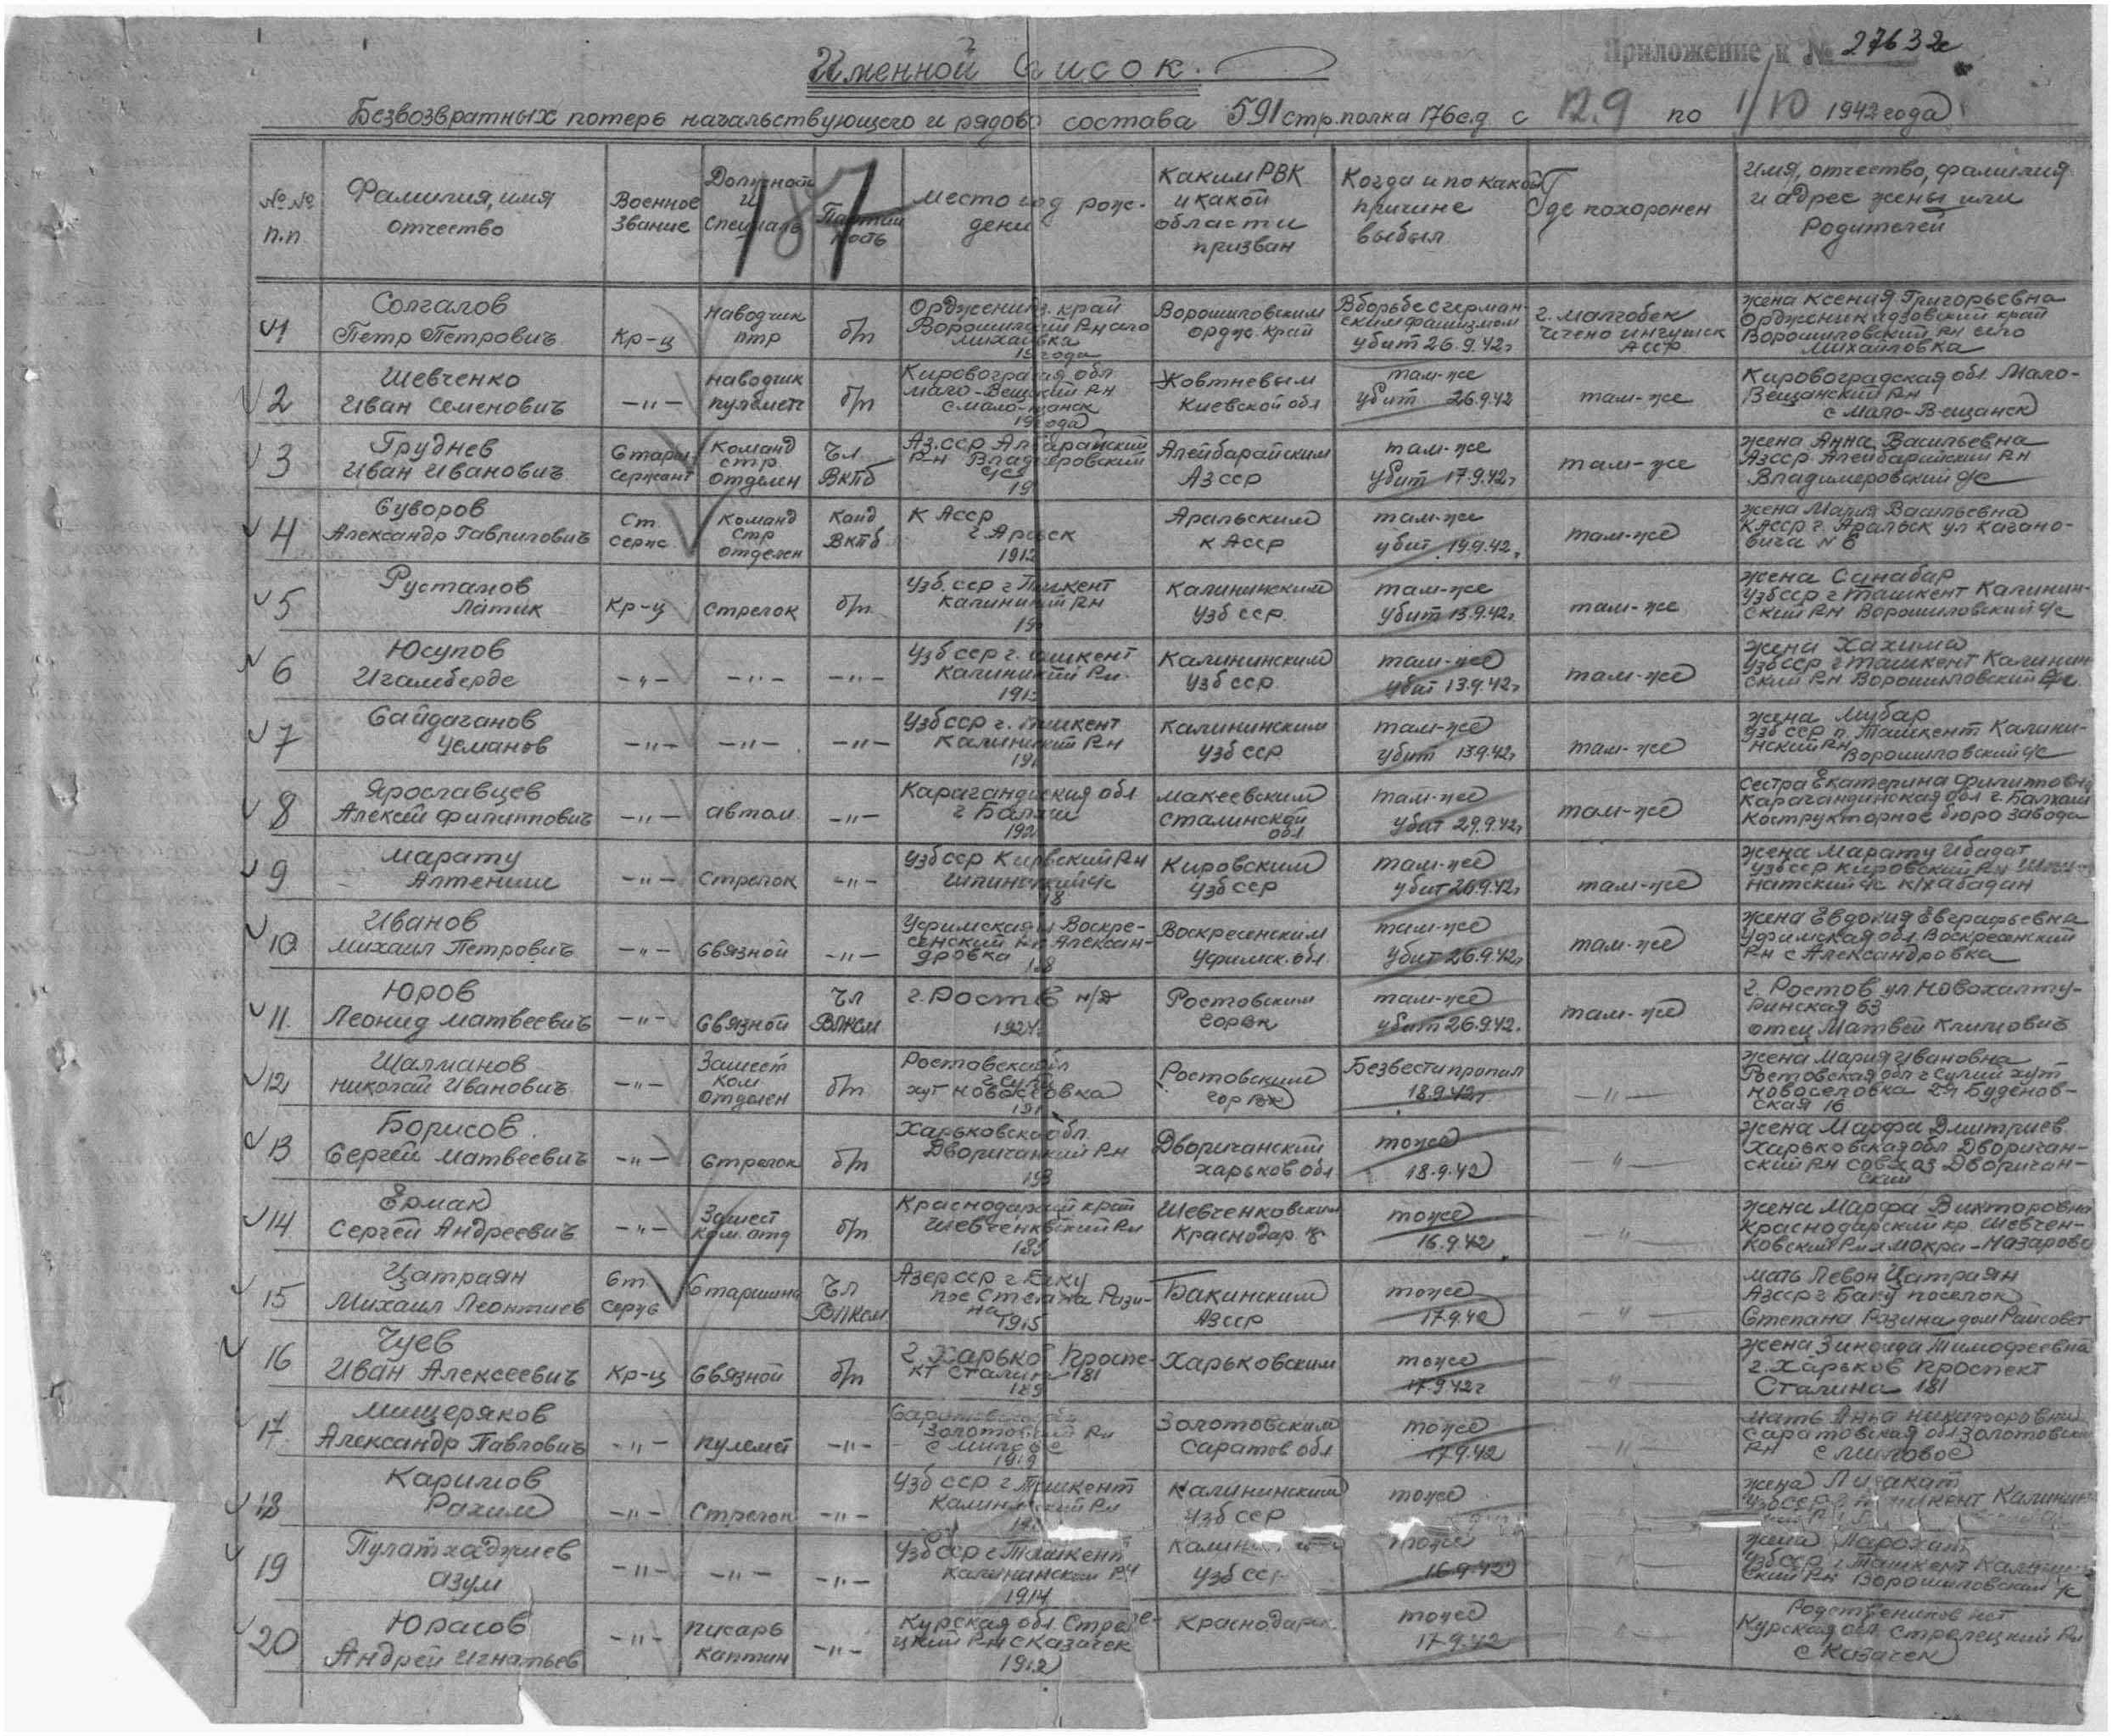 Приложение к № 27632с
Именной список.
Безвозвратных потерь начальствующего и рядово состава 591 стр.полка 176с.д. с 12.9 по 1/10 1942 года
187
№№ п.п
Фамилия, имя отчество
Военное звание
Должность и специаль
Партий ность
Место год рож- дени
Каким РВК и какой области призван
Когда и по какой причине выбыл
Где похоронен
Имя, отчество, фамилия и адрес жены или родителей
1
Солгалов
Петр Петрович
Кр-ц
Наводчик
птр
б/п
Орджоник. край
Ворошиловский Рн село
Михайловка
Ворошиловским
Ордж. край
В борьбе с герман-
ским фашизмом
убит 26.9.42г
г. Малгобек
Чечено ингушск
АССР
жена Ксения Григорьевна
Орджоникидзовский край
Ворошиловский Рн село
Михайловка
2
Шевченко
Иван Семенович
-"-
Наводчик
пулемет
б/п
Кировоградская обл
Мало-Вещский Рн
Жовтневым
Киевской обл
там-же
убит 26.9.42
там-же
Кировоградская обл. Мало-
Вещанский Рн
с Мало-Вещанск
3
Груднев
Иван Иванович
Старш
сержант
Команд
стр
отделен
Чл
ВКПб
Аз.ССР
Рн Владимировский
с/с
Алейбарайским
АзССР
там-же
убит 17.9.42г
там-же
жена Анна Васильевна
АзССР Алейбарайский Рн
Владимеровский с/с
4
Суворов
Александр Гаврилович
Ст.
серж.
Команд
стр
отделен
Канд
ВКПб
К АССР
г. Аральск
1912
Аральским
К АССР
там-же
убит 19.9.42г
там-же
жена Мария Васильевна
КАССР г. Аральск ул Кагано-
вича № 6
5
Рустамов
Латик
Кр-ц
Стрелок
б/п
Узб. ССР г Ташкент
Калининский Рн
Калининским
Узб ССР
там-же
убит 13.9.42г
там-же
жена Санабар
УзбССР г Ташкент Калинин-
ский Рн Ворошиловский с/с
6
Юсупов
Игамберде
-"-
-"-
-"-
Узб ССР г. Ташкент
Калининский Рн.
Калининским
Узб ССР
там-же
убит 13.9.42г
там-же
жена Хахима
УзбССР г Ташкент Калинин
ский Рн Ворошиловский с/с
7
Сайдаганов
Усманов
-"-
-"-
-"-
Узб ССР г. Ташкент
Калининский Рн
Калининским
Узб ССР
там-же
убит 13.9.42г
там-же
жена Мубар
Узб ССР г. Ташкент Калини-
нский Рн
Ворошиловский с/с
8
Ярославцев
Алексей Филиппович
-"-
автом.
-"-
Карагандинская обл
г Балхаш
Макеевским
Сталинской
обл
там-же
убит 29.9.42г
там-же
сестра Екатерина Филипповна
Карагандинская обл г. Балхаш
Кострукторное бюро завода
9
Марату
Алтениши
-"-
Стрелок
-"-
Узб ССР Кировский Рн
Кировским
Узб ССР
там-же
убит 26.9.42г
там-же
жена Марату Ибадат
УзбССР Кировский Рн
натский с/с к/х абадан
10
Иванов
Михаил Петрович
-"-
Связной
-"-
Уфимская Воскре-
сенский Рн Алексан-
дровка
Воскресенским
Уфимск. обл
там-же
убит 26.9.42г
там-же
жена Евдокия Евграфьевна
Уфимская обл Воскресенский
Рн с Александровка
11.
Юров
Леонид Матвеевич
-"-
Связной
Чл
ВЛКСМ
г. Ростов н/Д
1924
Ростовским
ГорВк
там-же
убит 26.9.42.
там-же
г. Ростов ул Новохалту-
ринская 63
отец Матвей Климович
12
Шалманов
Николай Иванович
-"-
Замест
ком
отделен
б/п
Ростовская обл
г Сулин
хут Новоселовка
Ростовским
гор Вк
Без вести пропал
18.9.42г
-"-
жена Мария Ивановна
Ростовская обл г Сулин хут
Новоселовка 2я Буденов-
ская 16
13
Борисов.
Сергей Матвеевич
-"-
Стрелок
б/п
Харьковская обл.
Дворичанский Рн
Дворичанский
Харьков обл
тоже
18.9.42
-"-
жена Марфа Дмитриев
Харьковская обл Дворичан-
ский Рн совхоз Дворичан-
ский
14
Ермак
Сергей Андреевич
-"-
Замест
ком. отд
б/п
Краснодарский край
Шевченковский Рн
Шевченковским
Краснодар. к
тоже
16.9.42
-"-
жена Марфа Викторовна
Краснодарский кр. Шевчен-
ковский Рн Мокри-Назарово
15
Цатраян
Михаил Леонтиев
Ст.
серж
Старшина
Чл
ВЛКСМ
Азер ССР г Баку
пос Степана Рази-
на 1915
Бакинским
АзССР
тоже
17.9.42
-"-
мать Левон Цатраян
АзССР г Баку поселок
Степана Разина дом Райсовет
16
Чуев
Иван Алексеевич
Кр-ц
Связной
б/п
г. Харьков Проспе-
кт Сталина 181
Харьковским
тоже
17.9.42г
-"-
жена Зинаида Тимофеевна
г. Харьков проспект
Сталина 181
17.
Мищеряков
Александр Павлович
-"-
пулемет
-"-
Саратовская обл
Золотовский Рн
с Миловое
1919
Золотовским
Саратов обл
тоже
17.9.42
-"-
мать Анна Никифоровна
Саратовская обл Золотовский
Рн с Миловое
18
Каримов
Рахим
-"-
Стрелок
-"-
Узб ССР г Ташкент
Калининский Рн
Калининским
Узб ССР
тоже
жена
УзбССР г Ташкент Калинин
19
Пулатхаджиев
Азум
-"-
-"-
-"-
Узб ССР г Ташкент
Калининский Рн
1914
Калининским
Узб ССР
тоже
16.9.42
жена
УзбССР г Ташкент Калинин
ский Рн Ворошиловский с/с
20
Юрасов
Андрей Игнатьев
-"-
писарь
каптин
-"-
Курская обл. Стреле-
цкий Рн с Казачек
1912
Краснодарск.
тоже
17.9.42
-"-
Родствеников нет
Курская обл Стрелецкий Рн
с Казачек